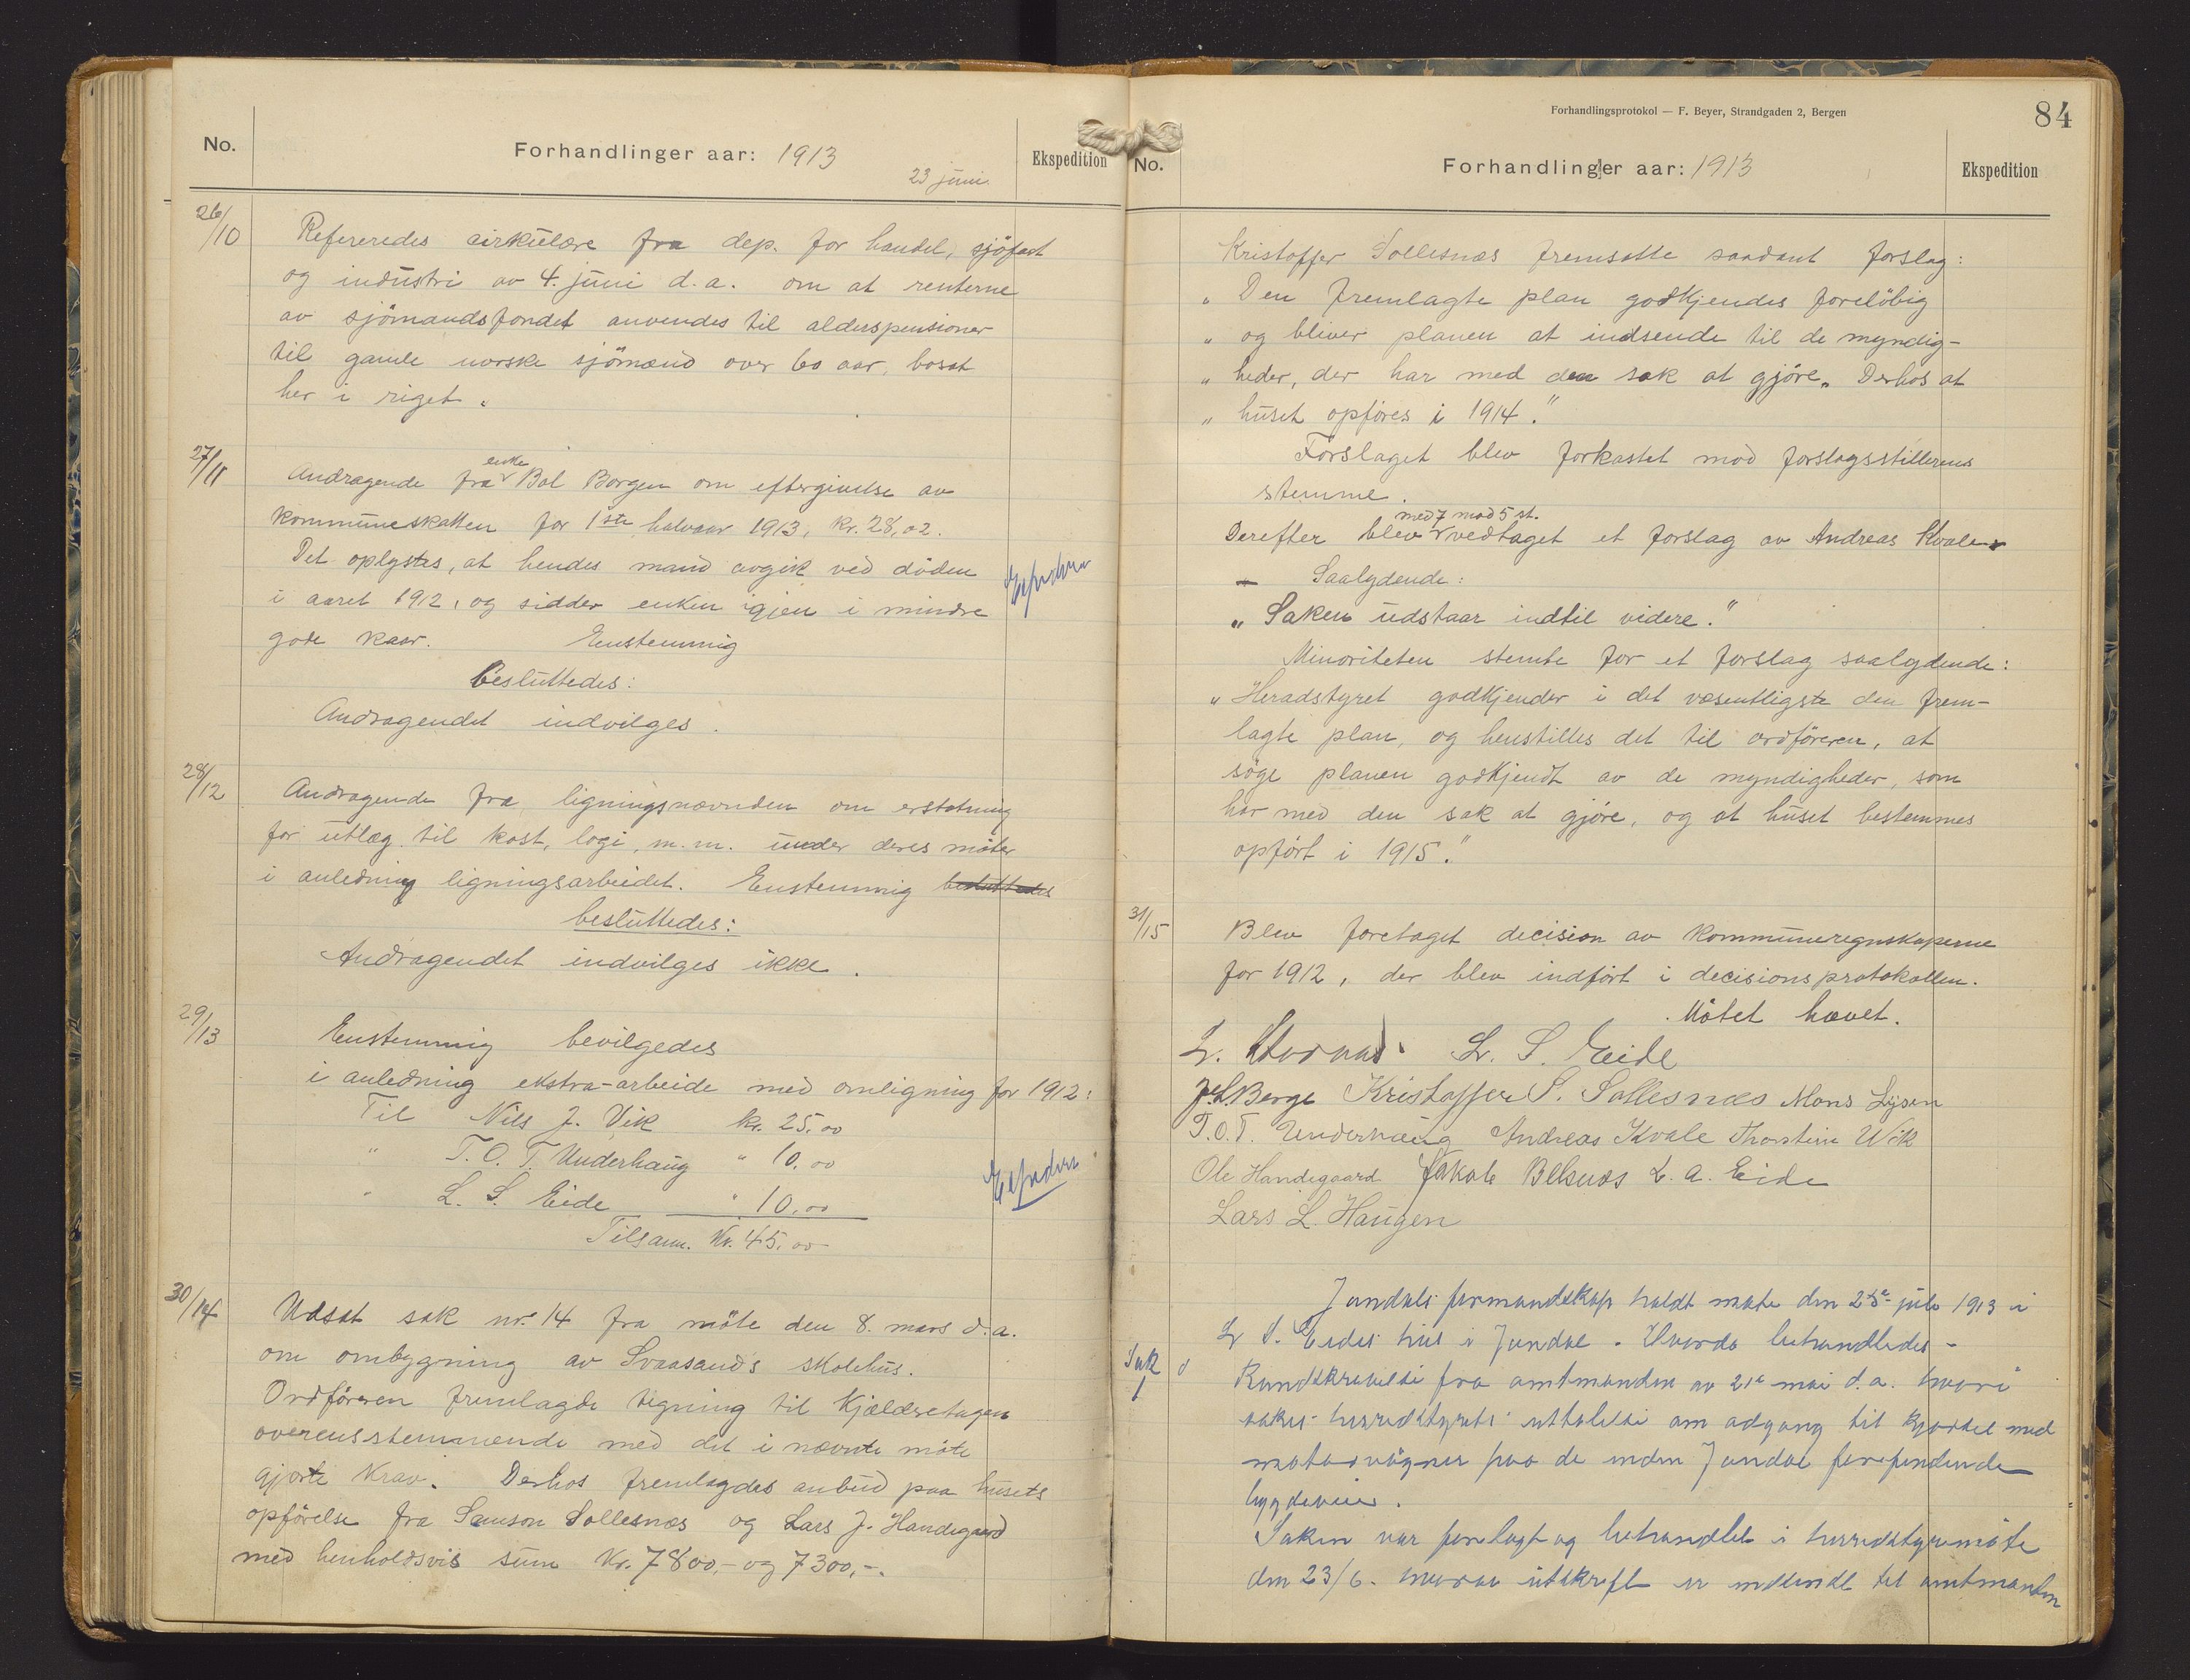 No.
Forhandlinger aar: 1913
23 juni.
Ekspedition
26/10
Refereredes cirkulære fra dep. for handel, sjöfart
og industri av 4. juni d.a. om at renterne
av sjömandsfondet anvendes til alderspensioner
til gamle norske sjömænd over 60 aar, bosat
her i riget.
27/11
enke
Andragende fra Bol Borgen om eftergivelse av
kommuneskatten for 1ste halvaar 1913, kr. 28,02.
Det oplystes, at hendes mand avgik ved döden
i aaret 1912, og sidder enken igjen i mindre
gode kaar. Enstemmig
besluttedes:
Andragendet indvilges.
28/12
Andragende fra ligningsnævnden om erstatning
for utlæg til kost, logi, m.m. under deres möter
i anledning ligningsarbeidet. Enstemmig besluttedes
besluttedes:
Andragendet indvilges ikke.
29/13
Enstemmig bevilgedes
i anledning ekstra-arbeide med omligning for 1912:
Til Nils J. Vik kr. 25.00
" T.O.T. Underhaug " 10.00
" L. S. Eide " 10.00
Tilsam. Kr. 45.00
30/14
Udsat sak nr. 14 fra möte den 8. mars d.a.
om ombygning av Svaasands skolehus.
Ordföreren fremlagde tegning til kjælderetagen
overensstemmende med det i nævnte möte
gjorte krav. Derhos fremlagdes anbud paa husets
opförelse fra Samson Sollesnæs og Lars J. Handegaard
med henholdsvis sum Kr. 7800,- og 7300,-.
Forhandlingsprotokol — F. Beyer, Strandgaden 2, Bergen
84
No.
Forhandlinger aar: 1913
Ekspedition
Kristoffer Sollesnæs fremsatte saadant forslag:
„ Den fremlagte plan godkjendes foreløbig
„ og bliver planen at indsende til de myndig-
„ heder, der har med den sak at gjöre. Derhos at
„ huset opföres i 1914."
Forslaget blev forkastet mod forslagsstillerens
stemme.
med 7 mod 5 st.
Derefter blev vedtaget et forslag av Andreas Kvale
- Saalydende:
„ Saken udstaar indtil videre."
Minoriteten stemte for et forslag saalydende:
„ Heradstyret godkjender i det væsentligste den frem-
lagte plan, og henstilles det til ordföreren, at
söge planen godkjendt av de myndigheder, som
har med den sak at gjöre, og at huset bestemmes
opfört i 1915."
31/15
Blev foretaget decision av kommuneregnskaperne
for 1912, der blev indfört i decisionsprotokollen.
Mötet hævet.
L. S. Eide
Berge Kristoffer S. Sollesnæs Mons Lysen
T.O.T. Underhaug Andreas Kvale Thorstein Wik
Ole Handegaard Jakob Belsnæs L. A. Eide
Lars L. Haugen
Jondals formandskap holdt møte den 25de juli 1913 i
L S. Eides hus i Jondal. Hvorda behandledes -
Sak
1
Rundskrivelse fra amtmanden av 21de mai d.a. hvori
søkes herredstyrets uttalelse om adgang til kjørsel med
motorvögner paa de inden Jondal forefindende
bygdeveier.
Saken var forelagt og behandlet i herredstyremöte
den 23/6. hvorav utskrift er indsendt til amtmanden